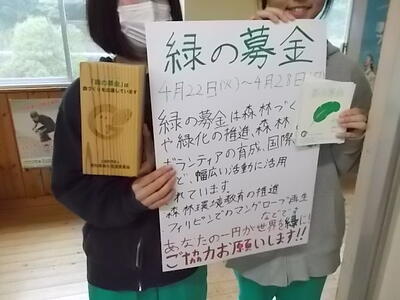 緑の募金
4月22日(火)～4月28日
緑の募金は森林づく
や緑化の推進、森林
ボランティアの育成、国際
で、幅広い活動に活用
れています。
森林環境教育の推進
フィリピンでのマングローブ再生
などです
あなたの一円が世界を緑に!
ご協力お願いします!!
「緑の募金」は
森づくりを応援しています
緑の募金